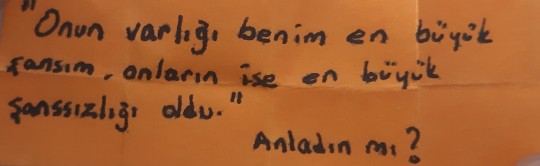 "Onun varlığı benim en büyük
şansım, onların ise en büyük
şanssızlığı oldu."
Anladın mı?